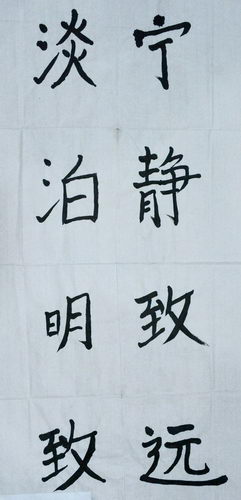 宁静致远
淡泊明致